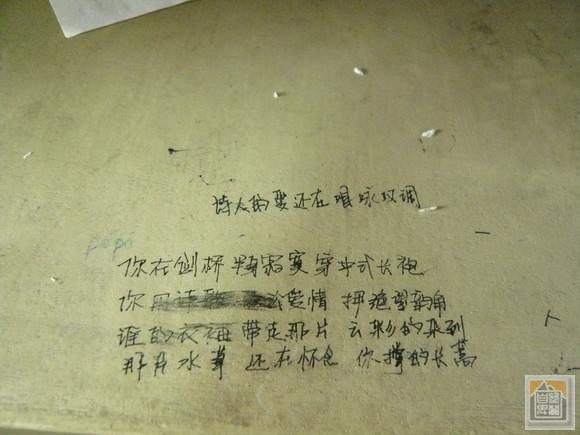 诗人的爱还在咏叹调
popo
你在剑桥 霜寒穿中式长袍
你用 给爱情 押绝望韵角
谁的衣袖 带走那片 云彩的
那片水草 还在怀念 你撑的长篙